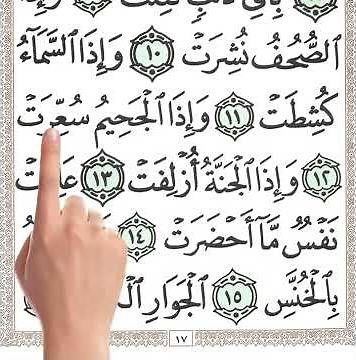 بِأَىِّ ذَنۢبٍ قُتِلَتْ
ٱلصُّحُفُ نُشِرَتْ ١٠ وَإِذَا ٱلسَّمَآءُ
كُشِطَتْ ١١ وَإِذَا ٱلْجَحِيمُ سُعِّرَتْ
١٢ وَإِذَا ٱلْجَنَّةُ أُزْلِفَتْ ١٣
نَفْسٌ مَّآ أَحْضَرَتْ ١٤
بِٱلْخُنَّسِ ١٥ ٱلْجَوَارِ
١٧